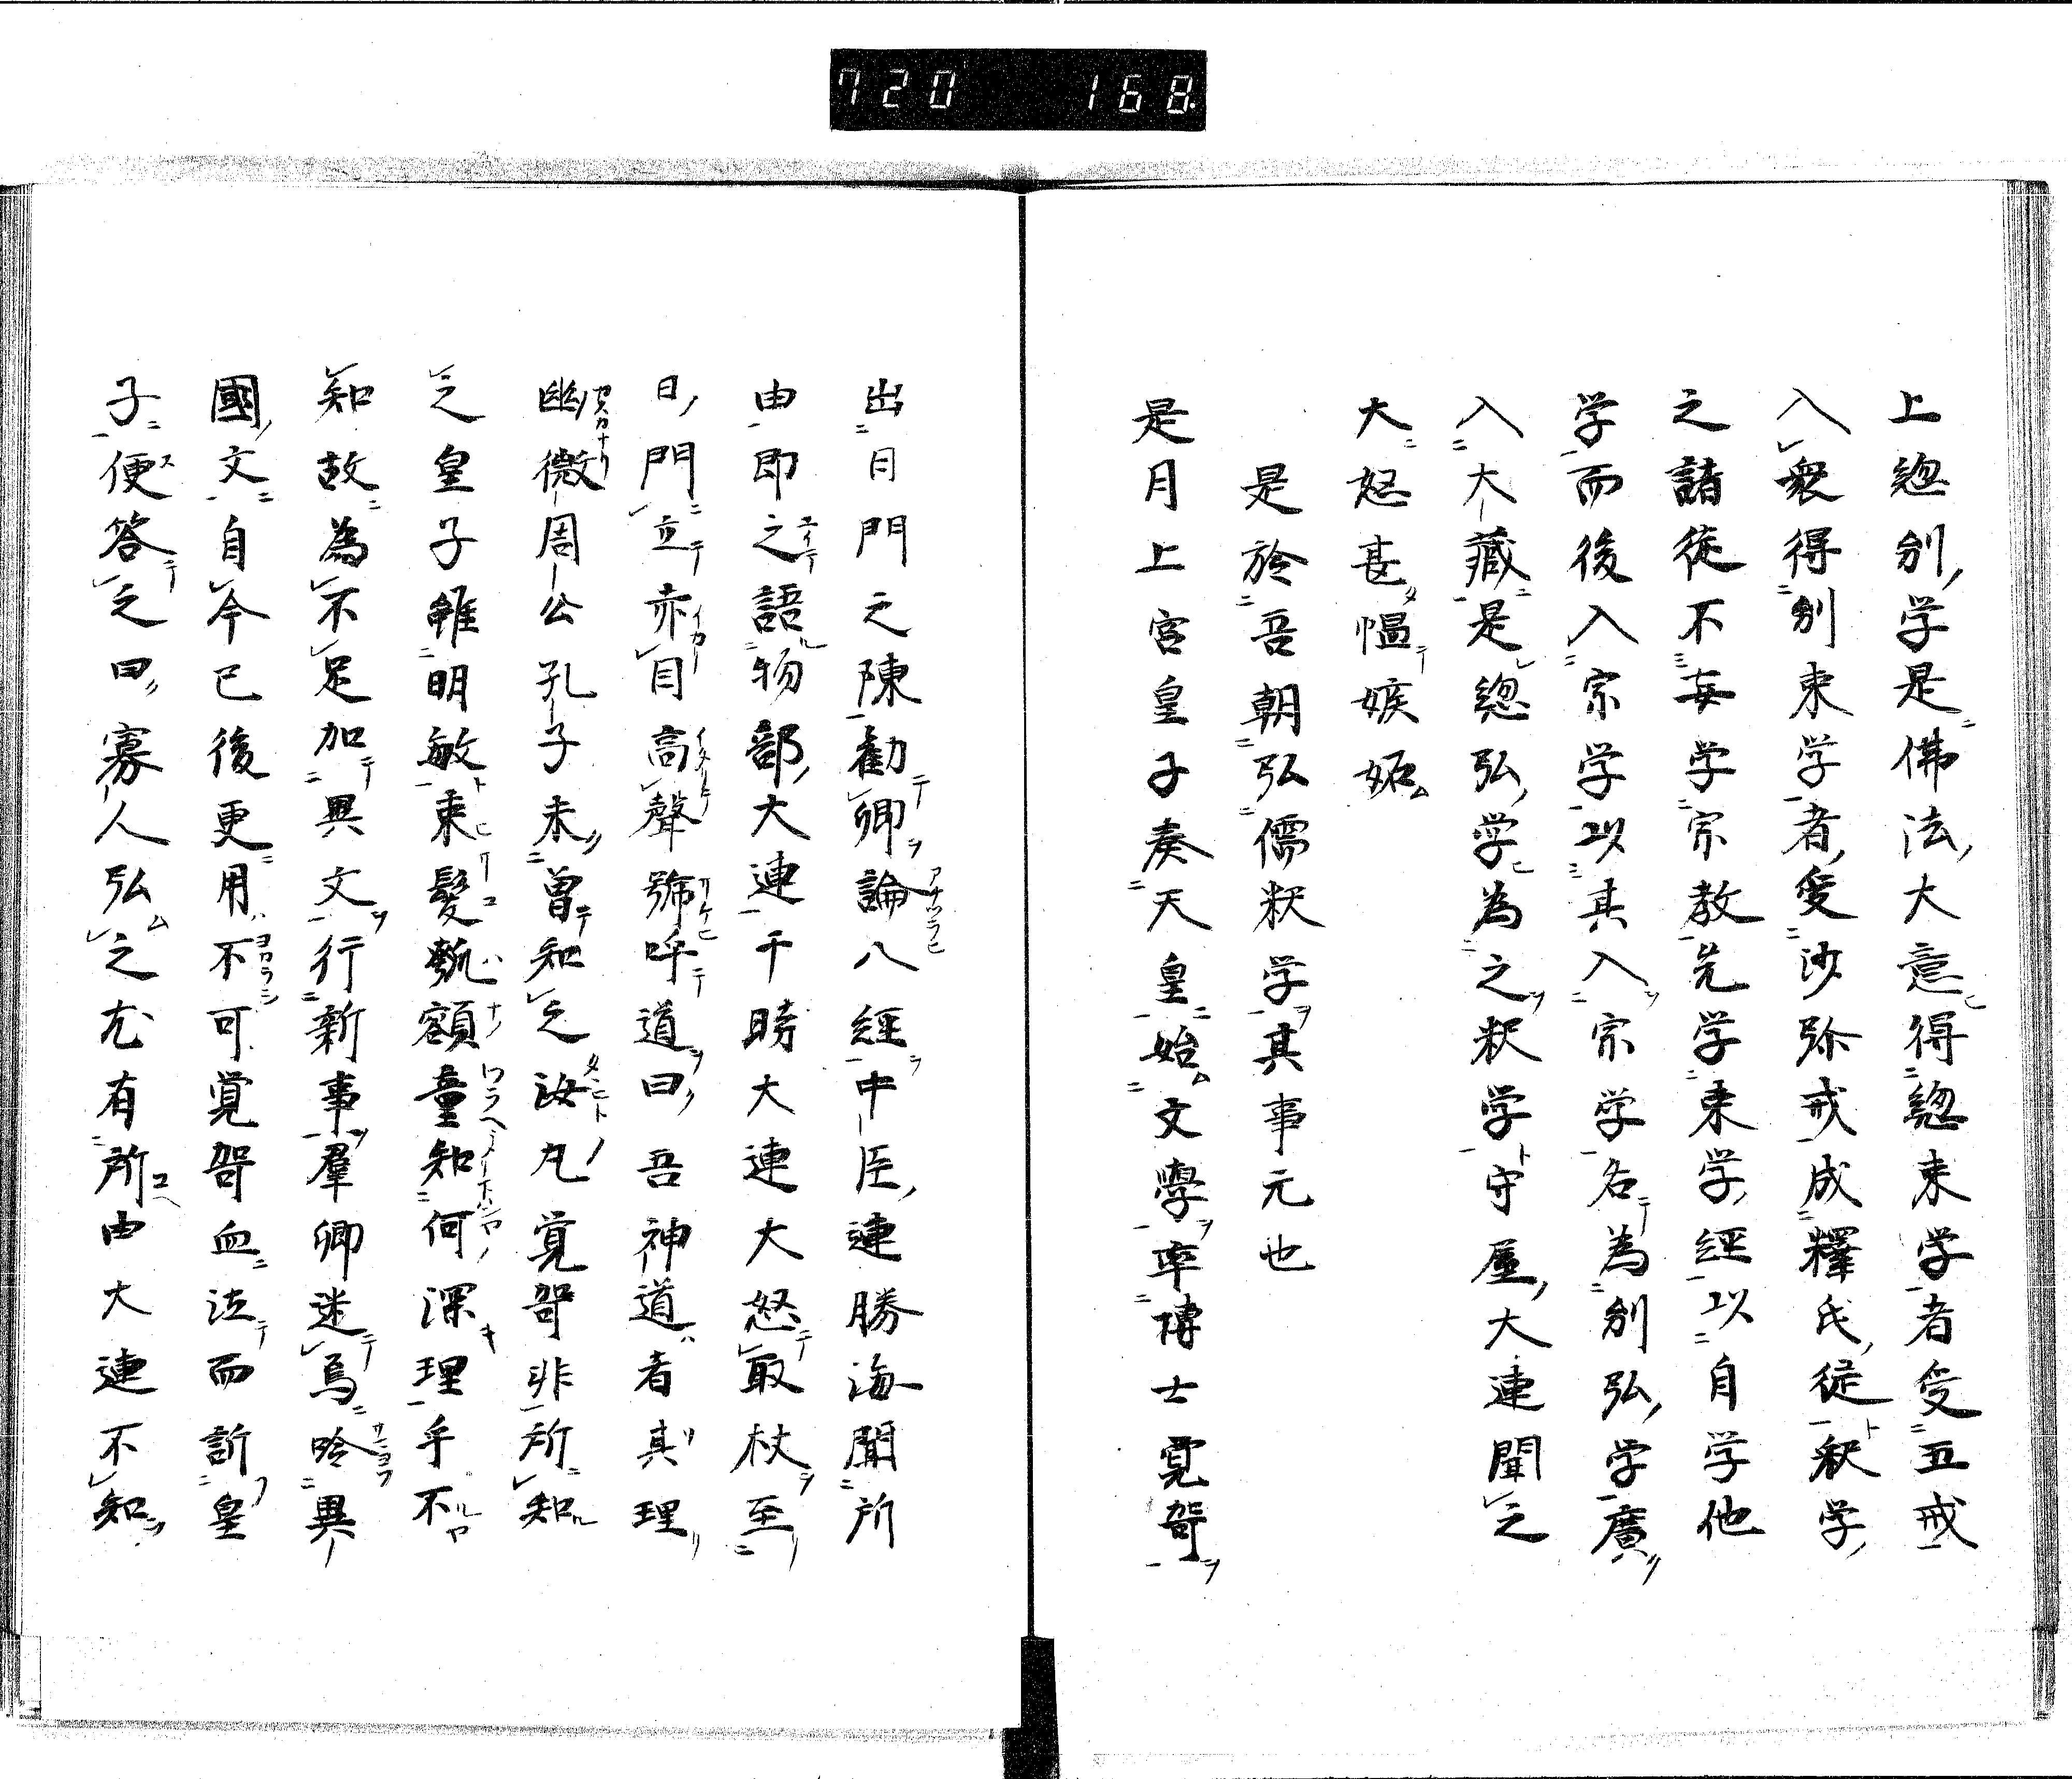 720 168
上総別学是佛法大意得総束学者受五戒
入衆得別束学者受沙弥戒成釋氏従釈学
之諸徒不妄学宗教先学束学経以自学他
学而後入宗学以其入宗学名為別弘学廣
入大藏是総弘学為之釈学守屋大連聞之
大怒甚慍嫉妬
是於吾朝弘儒釈学其事元也
是月上宮皇子奏天皇始文學率博士覚哿
出日門之陳勸卿論八經中臣連勝海聞所
由即之語物部大連于時大連大怒取杖至
日門立赤目高聲號呼道曰吾神道者其理
幽微周公孔子未曽知之汝丸覚哿非所知
之皇子雖明敏束髪額童知何深理乎不
知故為不足加異文行新事羣卿迷焉吟異
國文自今已後更用不可覚哿血法而訢皇
子便答之曰寡人弘之尤有所由大連不知